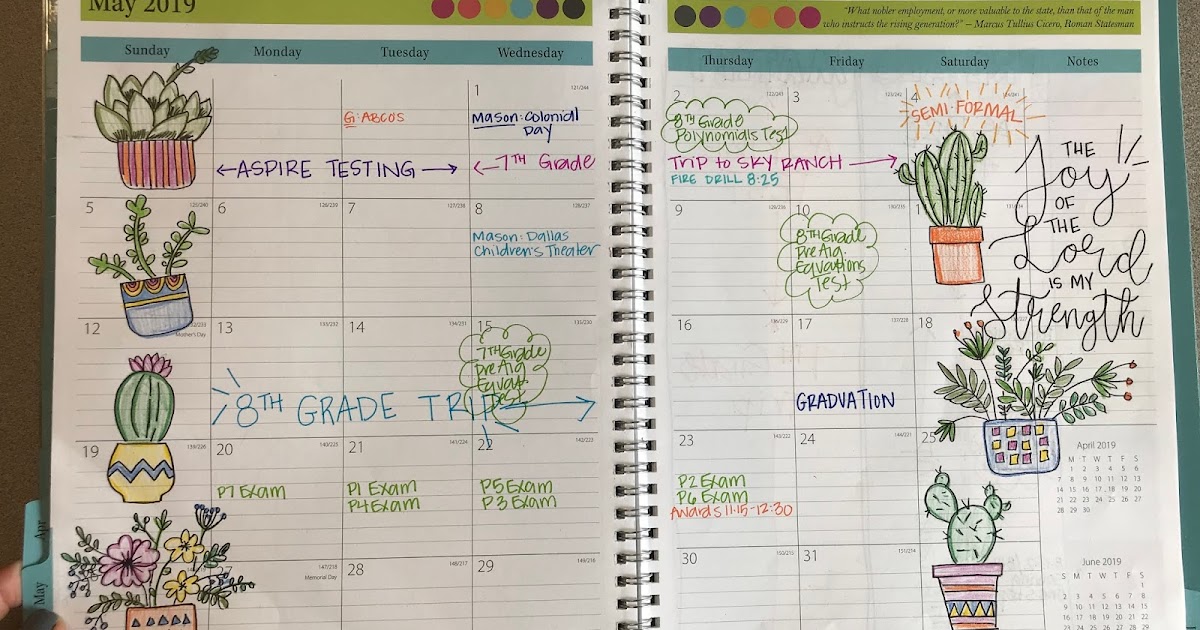 May 2019
"What nobler employment, or more valuable to the state, than that of the man
who instructs the rising generation?" – Marcus Tullius Cicero, Roman Statesman
Sunday Monday Tuesday Wednesday Thursday Friday Saturday Notes
1 121/244
2 122/243
3 123/242
4
G: ABCOS
Mason: Colonial
Day
8TH Grade
Polynomials Test
SEMI-FORMAL
←ASPIRE TESTING→
←7TH Grade
Trip to SKY RANCH →
FIRE DRILL 8:25
THE
Joy
OF
THE
Lord
IS MY
Strength
5 125/240
6 126/239
7 127/238
8 128/237
9 129/236
10 130/235
Mason: Dallas
Children's Theater
8TH Grade
Pre Alg.
Equations
Test
12
Mother's Day
13 133/232
14 134/231
15 135/230
16 136/229
17 137/228
18
7TH Grade
Pre Alg
Equat.
Test
8TH GRADE TRIP →
GRADUATION
19 139/226
20 140/225
21 141/224
22 142/223
23 143/222
24 144/221
25
P7 Exam
P1 Exam
P4 Exam
P5 Exam
P3 Exam
P2 Exam
P6 Exam
Awards 11:15-12:30
April 2019
M T W T F S
1 2 3 4 5 6
7 8 9 10 11 12 13
14 15 16 17 18 19 20
21 22 23 24 25 26 27
28 29 30
147/218
Memorial Day
28 148/217
29 149/216
30 150/215
31 151/214
June 2019
S M T W T F S
1
2 3 4 5 6 7 8
9 10 11 12 13 14 15
16 17 18 19 20 21 22
23 24 25 26 27 28 29
Apr
May